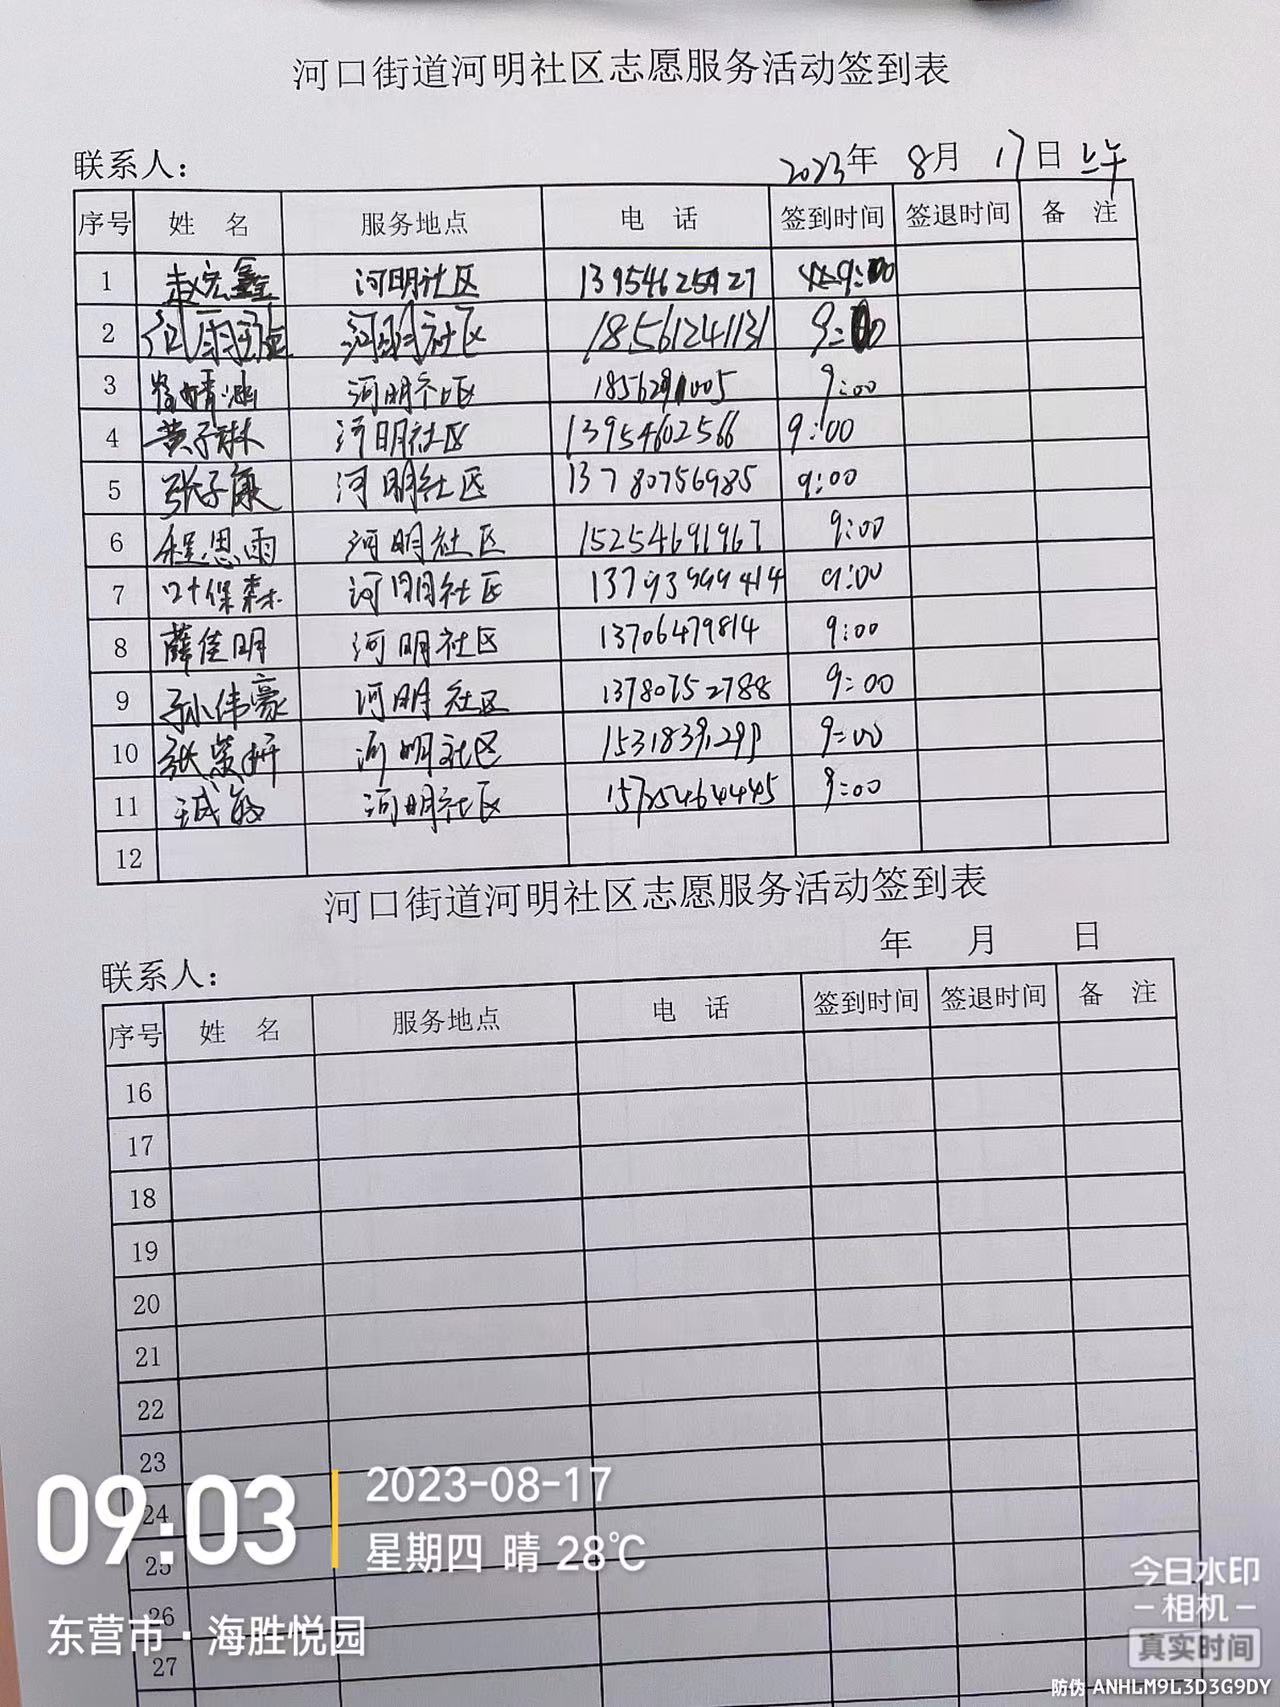 河口街道河明社区志愿服务活动签到表
联系人： 2023年 8月 17日 上午
序号 姓 名 服务地点 电 话 签到时间 签退时间 备 注
1 赵宏鑫 河明社区 13954625927 9:00
2 河明社区 18561241131 9:00
3 河明社区 9:00
4 黄子琳 河明社区 13954602566 9:00
5 张子康 河明社区 13780756985 9:00
6 程思雨 河明社区 15254691967 9:00
7 叶保森 河明社区 13793999414 9:00
8 薛佳明 河明社区 13706479814 9:00
9 孙伟豪 河明社区 13780752788 9:00
10 河明社区 9:00
11 河明社区 9:00
12
河口街道河明社区志愿服务活动签到表
年 月 日
联系人：
序号 姓 名 服务地点 电 话 签到时间 签退时间 备 注
16
17
18
19
20
21
22
23
24
25
26
27
09:03
2023-08-17
星期四 晴 28℃
东营市·海胜悦园
今日水印
-相机-
真实时间
防伪 ANHLM9L3D3G9DY